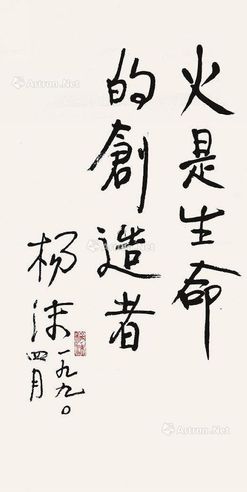 火是生命
的創造者
杨沫
一九九〇
四月
Artron.Net
Artron.Net
Artron.Net